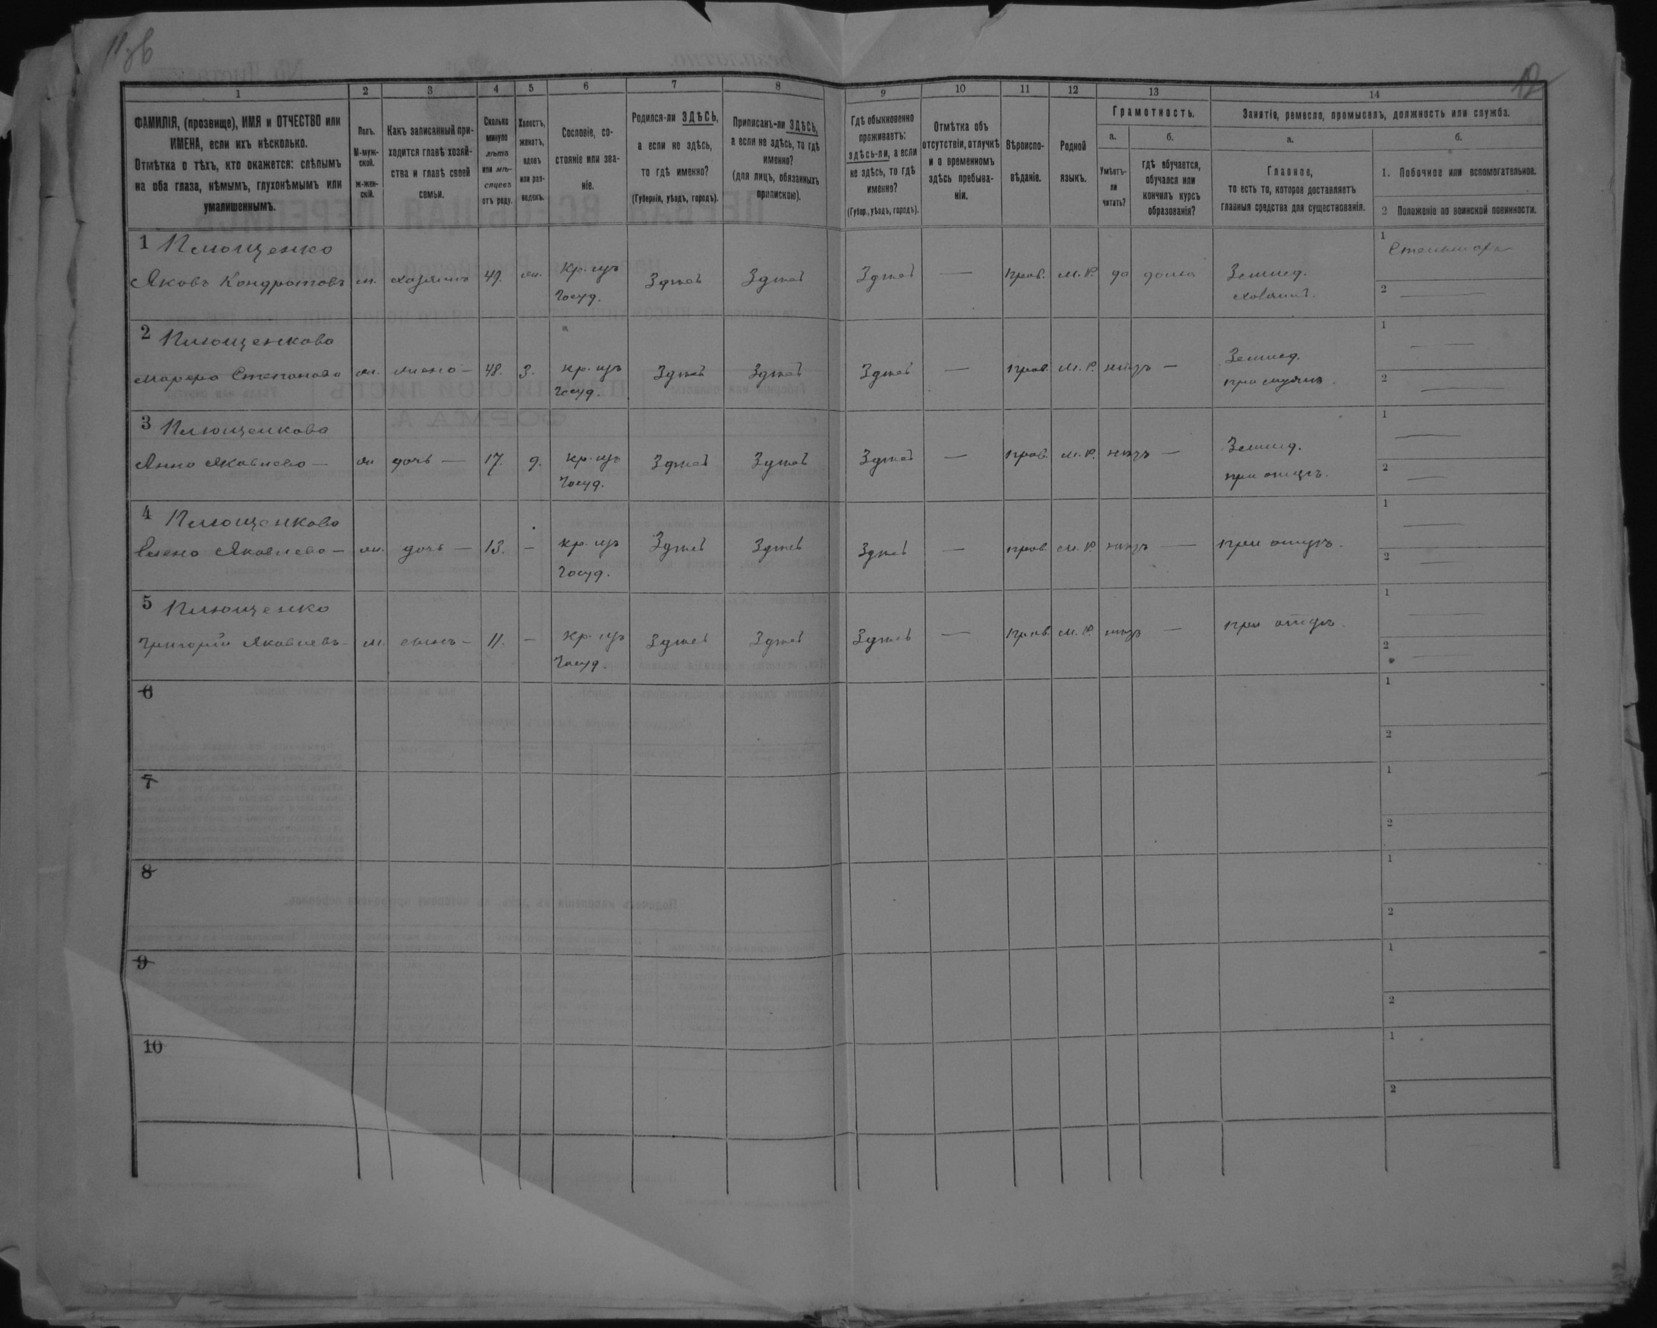 11об
12
1
2
3
4
5
6
7
8
9
10
11
12
13
14
ФАМИЛІЯ, (прозвище), ИМЯ и ОТЧЕСТВО или
ИМЕНА, если ихъ нѣсколько.
Отмѣтка о тѣхъ, кто окажется: слѣпымъ
на оба глаза, нѣмымъ, глухонѣмымъ или
умалишеннымъ.
Полъ.
М-муж-
ской.
ж-жен-
скій.
Какъ записанный при-
ходится главѣ хозяй-
ства и главѣ своей
семьи.
Сколько
минуло
лѣтъ
или мѣ-
сяцевъ
отъ роду.
Холостъ,
женатъ,
вдовъ
или раз-
веденъ.
Сословіе, со-
стояніе или зва-
ніе.
Родился-ли ЗДѢСЬ,
а если не здѣсь,
то гдѣ именно?
(Губернія, уѣздъ, городъ).
Приписанъ-ли ЗДѢСЬ,
а если не здѣсь, то гдѣ
именно?
(для лицъ, обязанныхъ
припискою).
Гдѣ обыкновенно
проживаетъ:
здѣсь-ли, а если
не здѣсь, то гдѣ
именно?
(Губер., уѣздъ, городъ).
Отмѣтка объ
отсутствіи, отлучкѣ
и о временномъ
здѣсь пребыва-
ніи.
Вѣроиспо-
вѣданіе.
Родной
языкъ.
Грамотность.
а.
Умѣетъ-
ли
читать?
б.
гдѣ обучается,
обучался или
кончилъ курсъ
образованія?
Занятіе, ремесло, промыселъ, должность или служба.
а.
Главное,
то есть то, которое доставляетъ
главныя средства для существованія.
б.
1. Побочное или вспомогательное.
2 Положеніе по воинской повинности.
1 Плющенко
Яковъ Кондратовъ м. хозяинъ 47. жн. Кр. изъ Госуд. Здѣсь Здѣсь Здѣсь — прав. М. Р. да дома Землед. хозяинъ.
1
2 —
2 Плющенкова
Марфа Степанова ж. жена — 48. З. Кр. изъ Госуд. Здѣсь Здѣсь Здѣсь — прав. М. Р. нѣтъ — Землед. при мужѣ.
1 —
2 —
3 Плющенкова
Анна Яковлева — ж дочь — 17. д. Кр. изъ Госуд. Здѣсь Здѣсь Здѣсь — прав. М. Р. нѣтъ — Землед. при отцѣ.
1 —
2 —
4 Плющенкова
Елена Яковлева — ж. дочь — 13. — Кр. изъ Госуд. Здѣсь Здѣсь Здѣсь — прав. М. Р. нѣтъ — при отцѣ.
1 —
2 —
5 Плющенко
Григорій Яковлевъ — м. сынъ — 11. — Кр. изъ Госуд. Здѣсь Здѣсь Здѣсь — прав. М. Р. нѣтъ — при отцѣ.
1 —
2
6
1
2
7
1
2
8
1
2
9
1
2
10
1
2